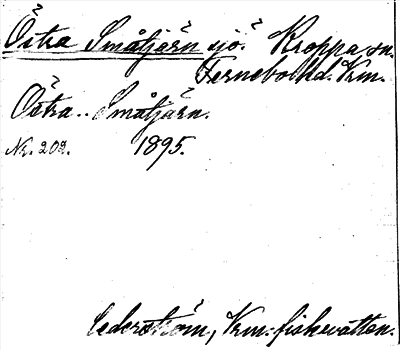 Östra Småtjärn sjö. Kroppa sn.
Fernebo hd. Vrm.
Östra.. Småtjärn.
Nr. 202. 1895.
Cederström, Vrm:s fiskevatten.